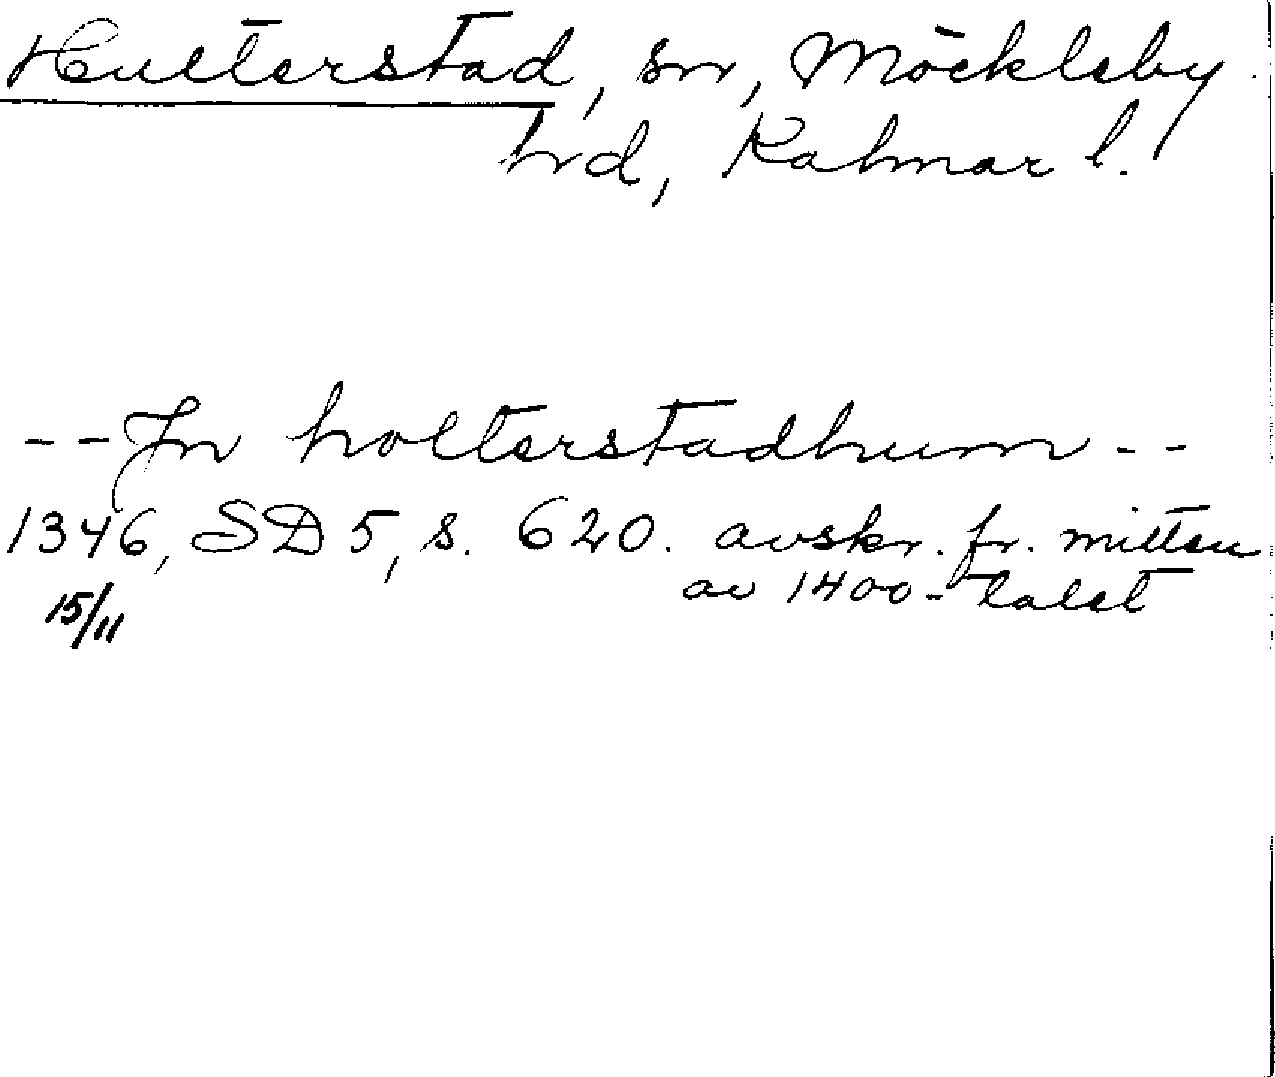 Hulterstad, sn, Möckleby
hd, Kalmar l.
--In holterstadhum--
1346, SD 5, s. 620. avskr. fr. mitten
av 1400-talet
15/11